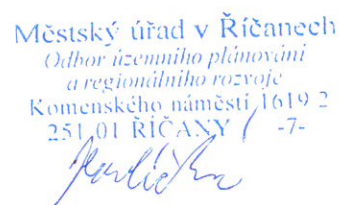 Městský úřad v Říčanech
Odbor územního plánování
a regionálního rozvoje
Komenského náměstí 1619 2
251 01 ŘÍČANY -7-